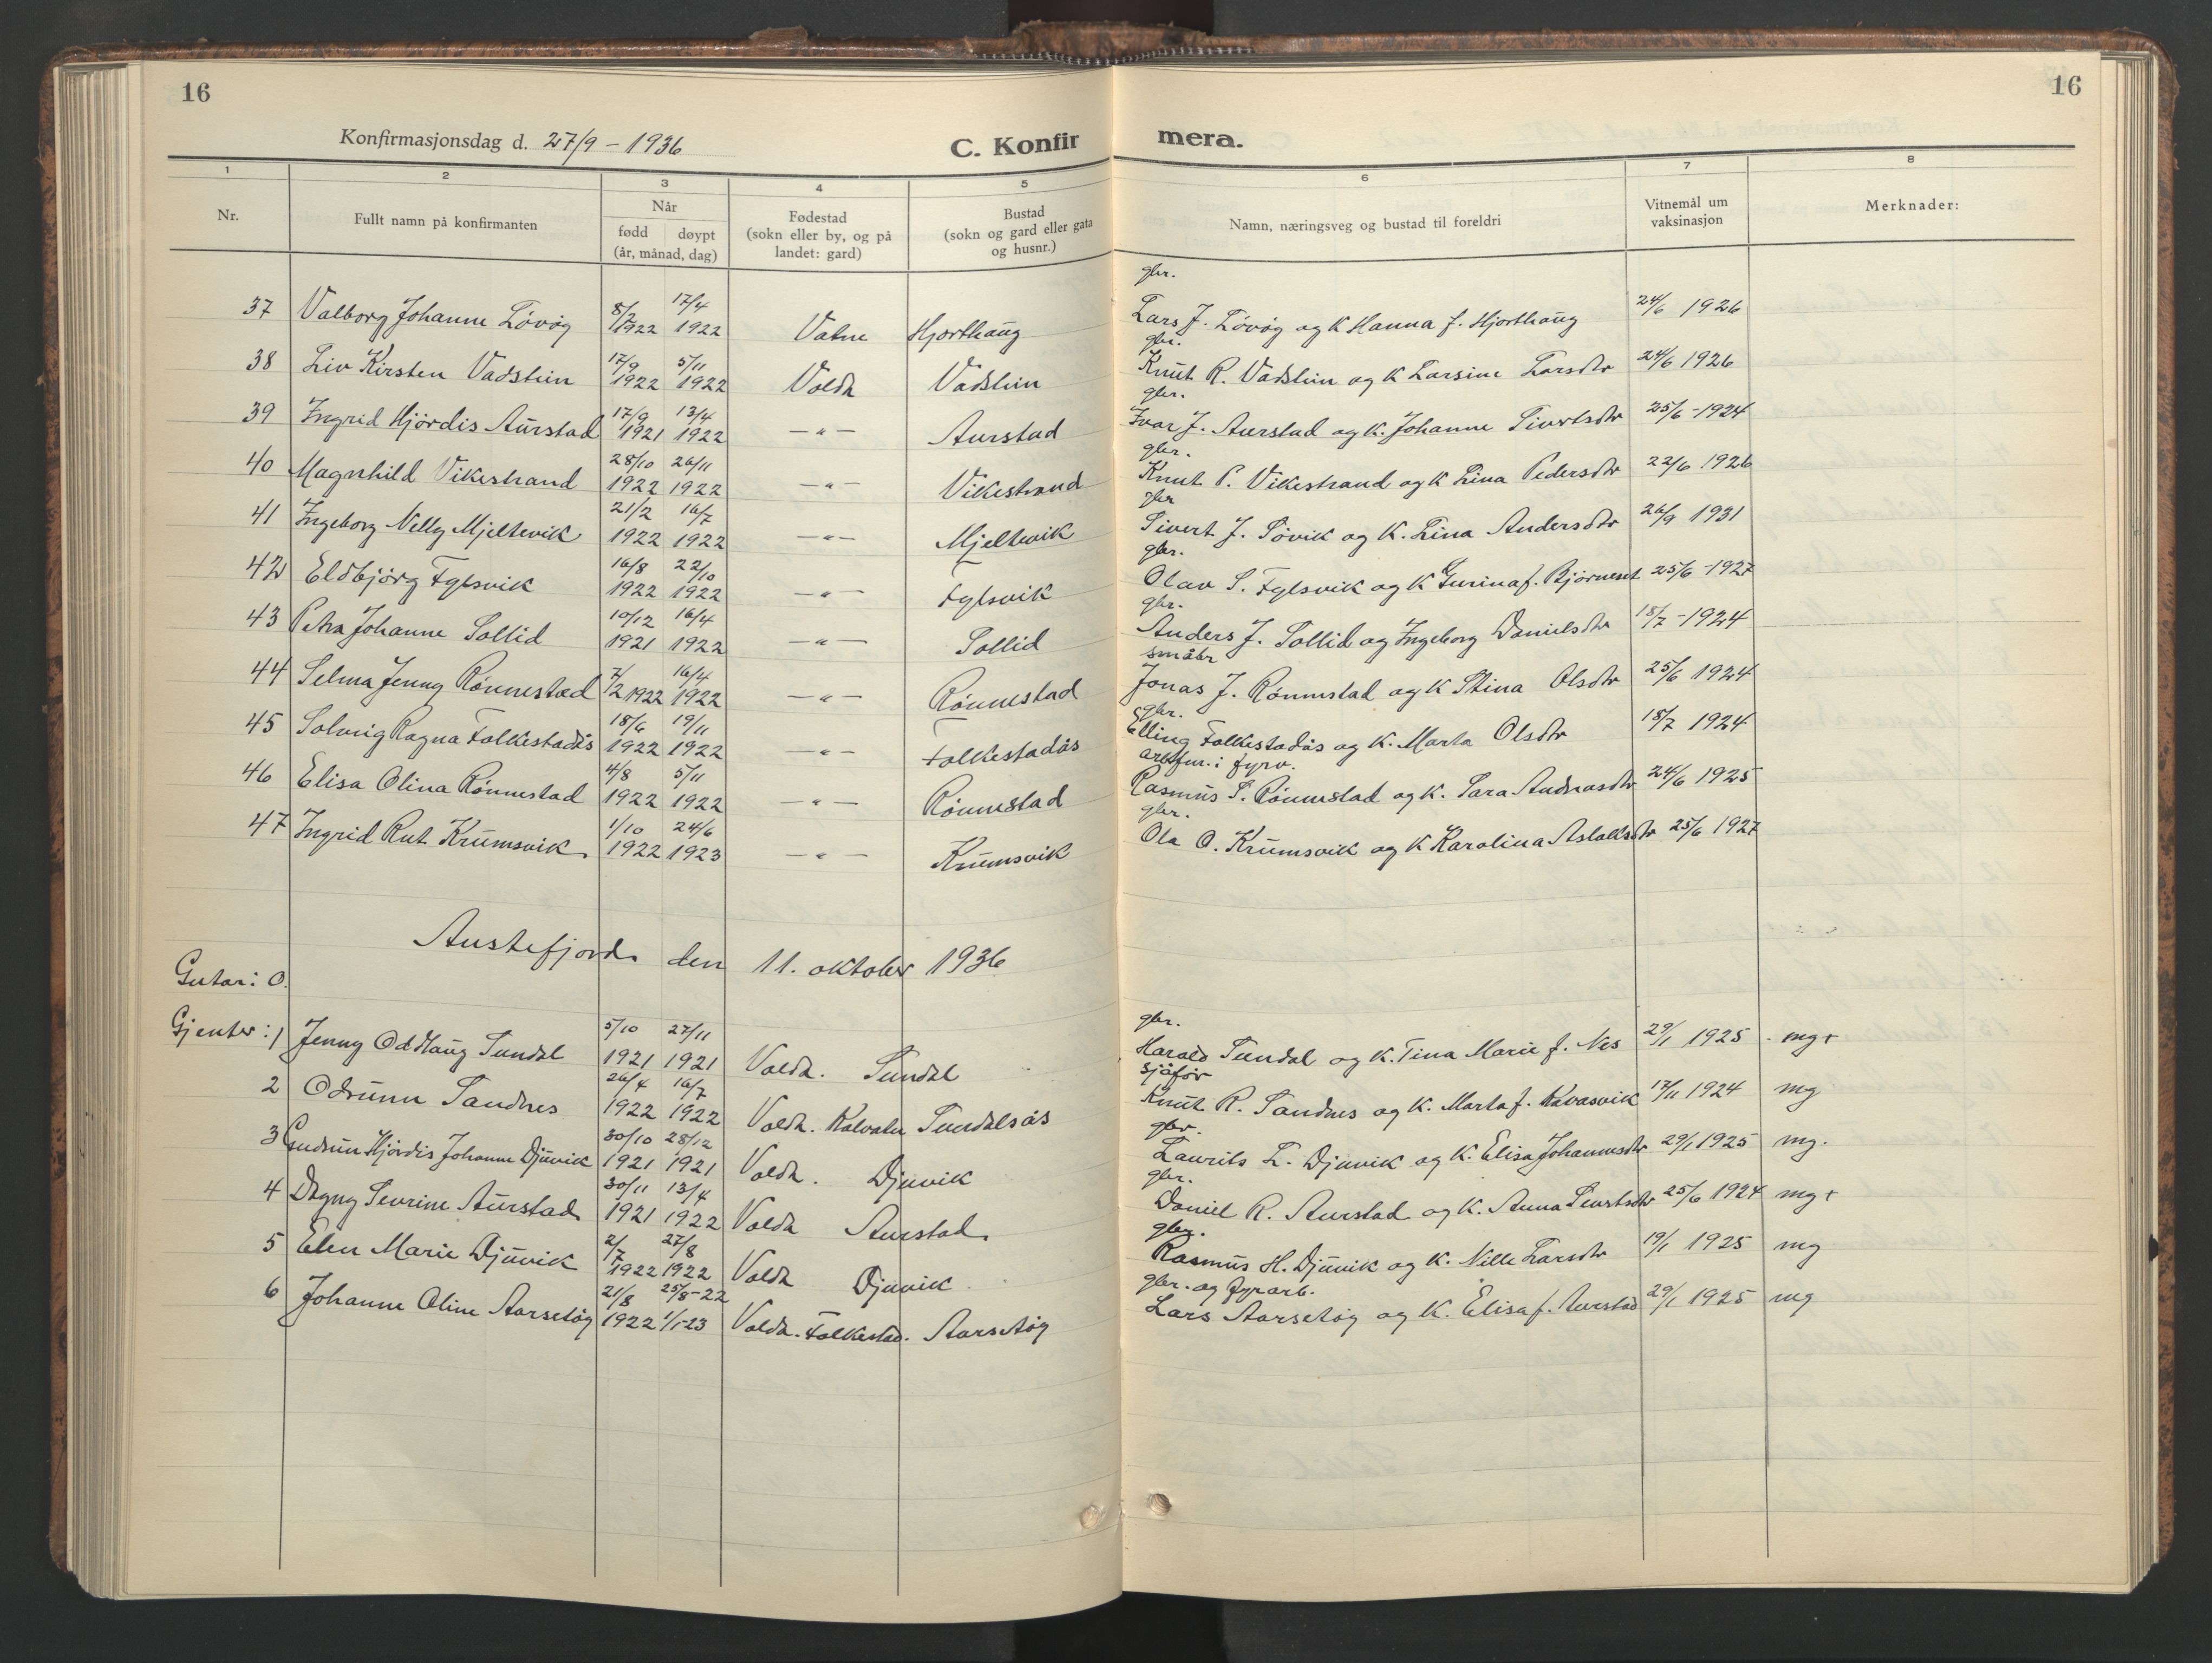 16
16
Konfirmasjonsdag d. 27/9 - 1936
C. Konfir mera.
1 2 3 4 5 6 7 8
Nr.
Fullt namn på konfirmanten
Når
fødd døypt
(år, månad, dag)
Fødestad
(sokn eller by, og på
landet: gard)
Bustad
(sokn og gard eller gata
og husnr.)
Namn, næringsveg og bustad til foreldri
Vitnemål um
vaksinasjon
Merknader:
gbr.
37 Valborg Johanne Løvøg 8/2 1922 17/4 1922 Vatne Hjorthaug Lars J. Løvøg og K Hanna f. Hjorthaug 24/6 1926
gbr.
38 Liv Kirsten Vadstein 17/9 1922 5/11 1922 Volda Vadstein Knut R. Vadstein og K Larsine Larsdtr 24/6 1926
gbr.
39 Ingrid Hjørdis Aurstad 17/9 1921 13/4 1922 — " — Aurstad Ivar J. Aurstad og K. Johanne Sivertsdtr 25/6 - 1924
gbr.
40 Magnhild Vikestrand 28/10 1922 26/11 1922 — " — Vikestrand Knut P. Vikestrand og K Lina Pedersdtr 22/6 1926
gbr
41 Ingeborg Nelly Mjeltevik 21/2 1922 16/7 1922 — " — Mjeltevik Sivert J. Søvik og K. Lina Andersdtr 26/9 1931
gbr.
42 Eldbjørg Fylsvik 16/8 1922 22/10 1922 — " — Fylsvik Olav S. Fylsvik og K Gurina f. Bjørneset 25/6 - 1927
gbr.
43 Petra Johanne Sollid 10/12 1921 16/4 1922 — " — Sollid Anders J. Sollid og Ingeborg Danielsdtr 18/7 - 1924
småbr
44 Selma Jenny Rønnestad 7/2 1922 16/4 1922 — " — Rønnestad Jonas J. Rønnestad og K Stina Olsdtr 25/6 1924
gbr.
45 Solveig Ragna Folkestadås 18/6 1922 19/11 1922 — " — Folkestadås Elling Folkestadås og K. Marta Olsdtr 18/7 1924
arbfm. i fyrv.
46 Elisa Olina Rønnestad 4/8 1922 5/11 1922 — " — Rønnestad Rasmus S. Rønnestad og K. Sara Andreasdtr 24/6 1925
gbr.
47 Ingrid Rut Krumsvik 1/10 1922 24/6 1923 — " — Krumsvik Ola O. Krumsvik og K Karolina Aslaksdtr 25/6 1927
Austefjord den 11. oktober 1936
Gutar: 0.
gbr.
Gjenter: 1 Jenny Oddlaug Sundal 5/10 1921 27/11 1921 Volda. Sundal Harald Sundal og K. Tina Marie f. Nes 29/1 1925 mg+
sjåfør
2 Odrunn Sandnes 26/4 1922 16/7 1922 Volda. Kalvatn Sundalsås Knut R. Sandnes og K. Marta f. Kavasvik 17/11 1924 mg
gbr.
3 Gudrun Hjørdis Johanne Djuvik 30/10 1921 28/12 1921 Volda. Djuvik Laurits L. Djuvik og K. Elisa Johannesdtr 29/1 1925 mg.
gbr.
4 Dagny Sevrine Aurstad 30/11 1921 13/4 1922 Volda Aurstad Daniel R. Aurstad og K. Anna Sivertsdtr 25/6 1924 mg+
gbr.
5 Elen Marie Djuvik 2/7 1922 27/8 1922 Volda Djuvik Rasmus H. Djuvik og K. Nille Larsdtr 19/1 1925 mg
gbr. og fyrarb.
6 Johanne Oline Aarsetøy 21/8 1922 25/8-22 1/1-23 Volda. Folkestad. Aarsetøy Lars Aarsetøy og K. Elisa f. Aurstad 29/1 1925 mg